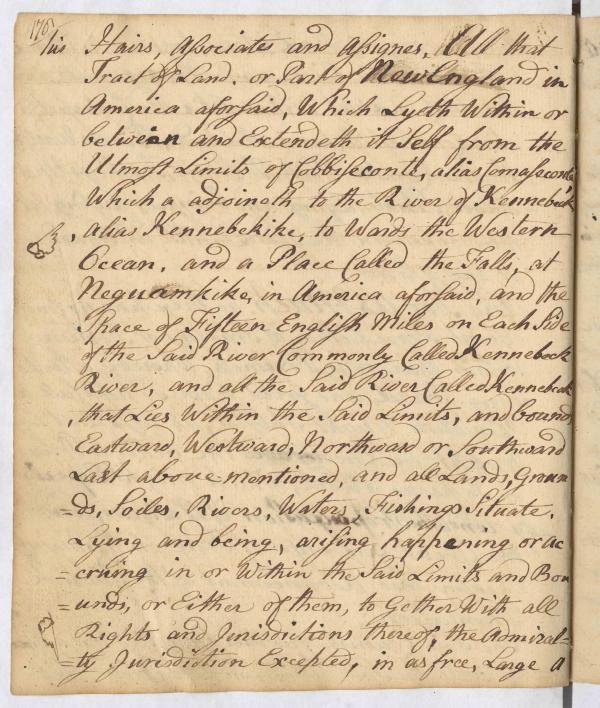 176
his Hairs, Associates and Assignes, All that
Tract of Land, or Part of New England in
America aforsaid, Which Lyeth Within or
between and Extendeth it Self from the
Utmost Limits of Cobbiseconte, alias Comasseconte
Which a adjoineth to the River of Kennebeck
, alias Kennebekike, to Wards the Western
Ocean, and a Place Called the Falls, at
Nequamkike, in America aforsaid, and the
Space of Fifteen English Miles on Each Side
of the Said River Commonly Called Kennebeck
River, and all the Said River Called Kennebeck
, that Lies Within the Said Limits, and bounds
Eastward, Westward, Northward or Southward
Last above mentioned, and all Lands, Groun
=ds, Soiles, Rivers, Waters, Fishings Situate,
Lying and being, arising happening or ac
=cruing in or Within the Said Limits and Bou
=unds, or Either of them, to Gether With all
Rights and Jurisdictions thereof, the Admiral=
=ty Jurisdiction Excepted, in as free, Large a